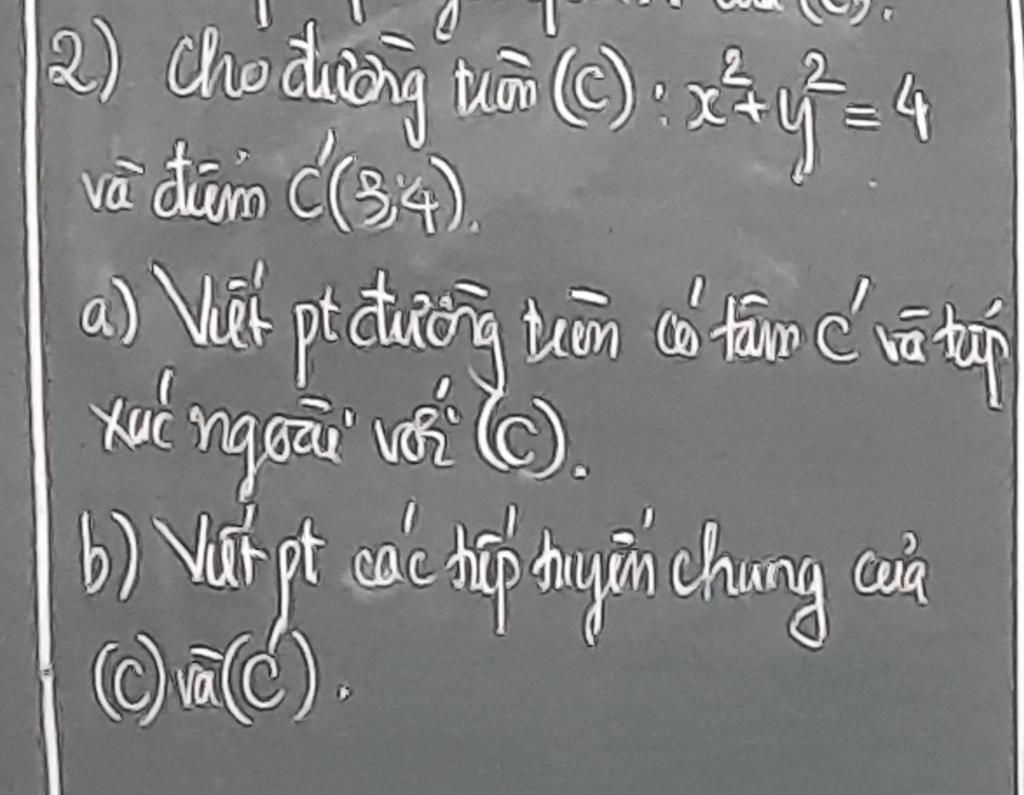 2) Cho đường tròn (C) : x² + y² = 4
và điểm C'(3;4).
a) Viết pt đường tròn có tâm C' và tiếp
xúc ngoài với (C).
b) Viết pt các tiếp tuyến chung của
(C) và (C').